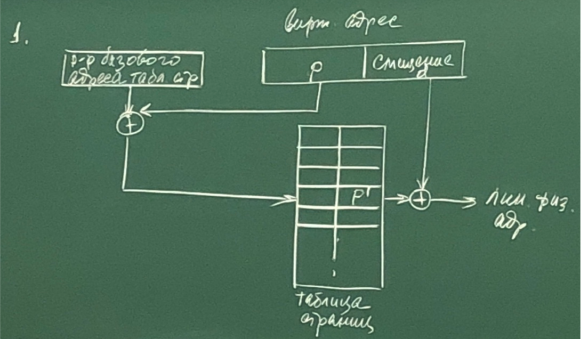 1.
вирт. адрес
р-р базового
адреса табл. стр
p
смещение
+
p'
+
лин. физ.
адр.
таблица
страниц